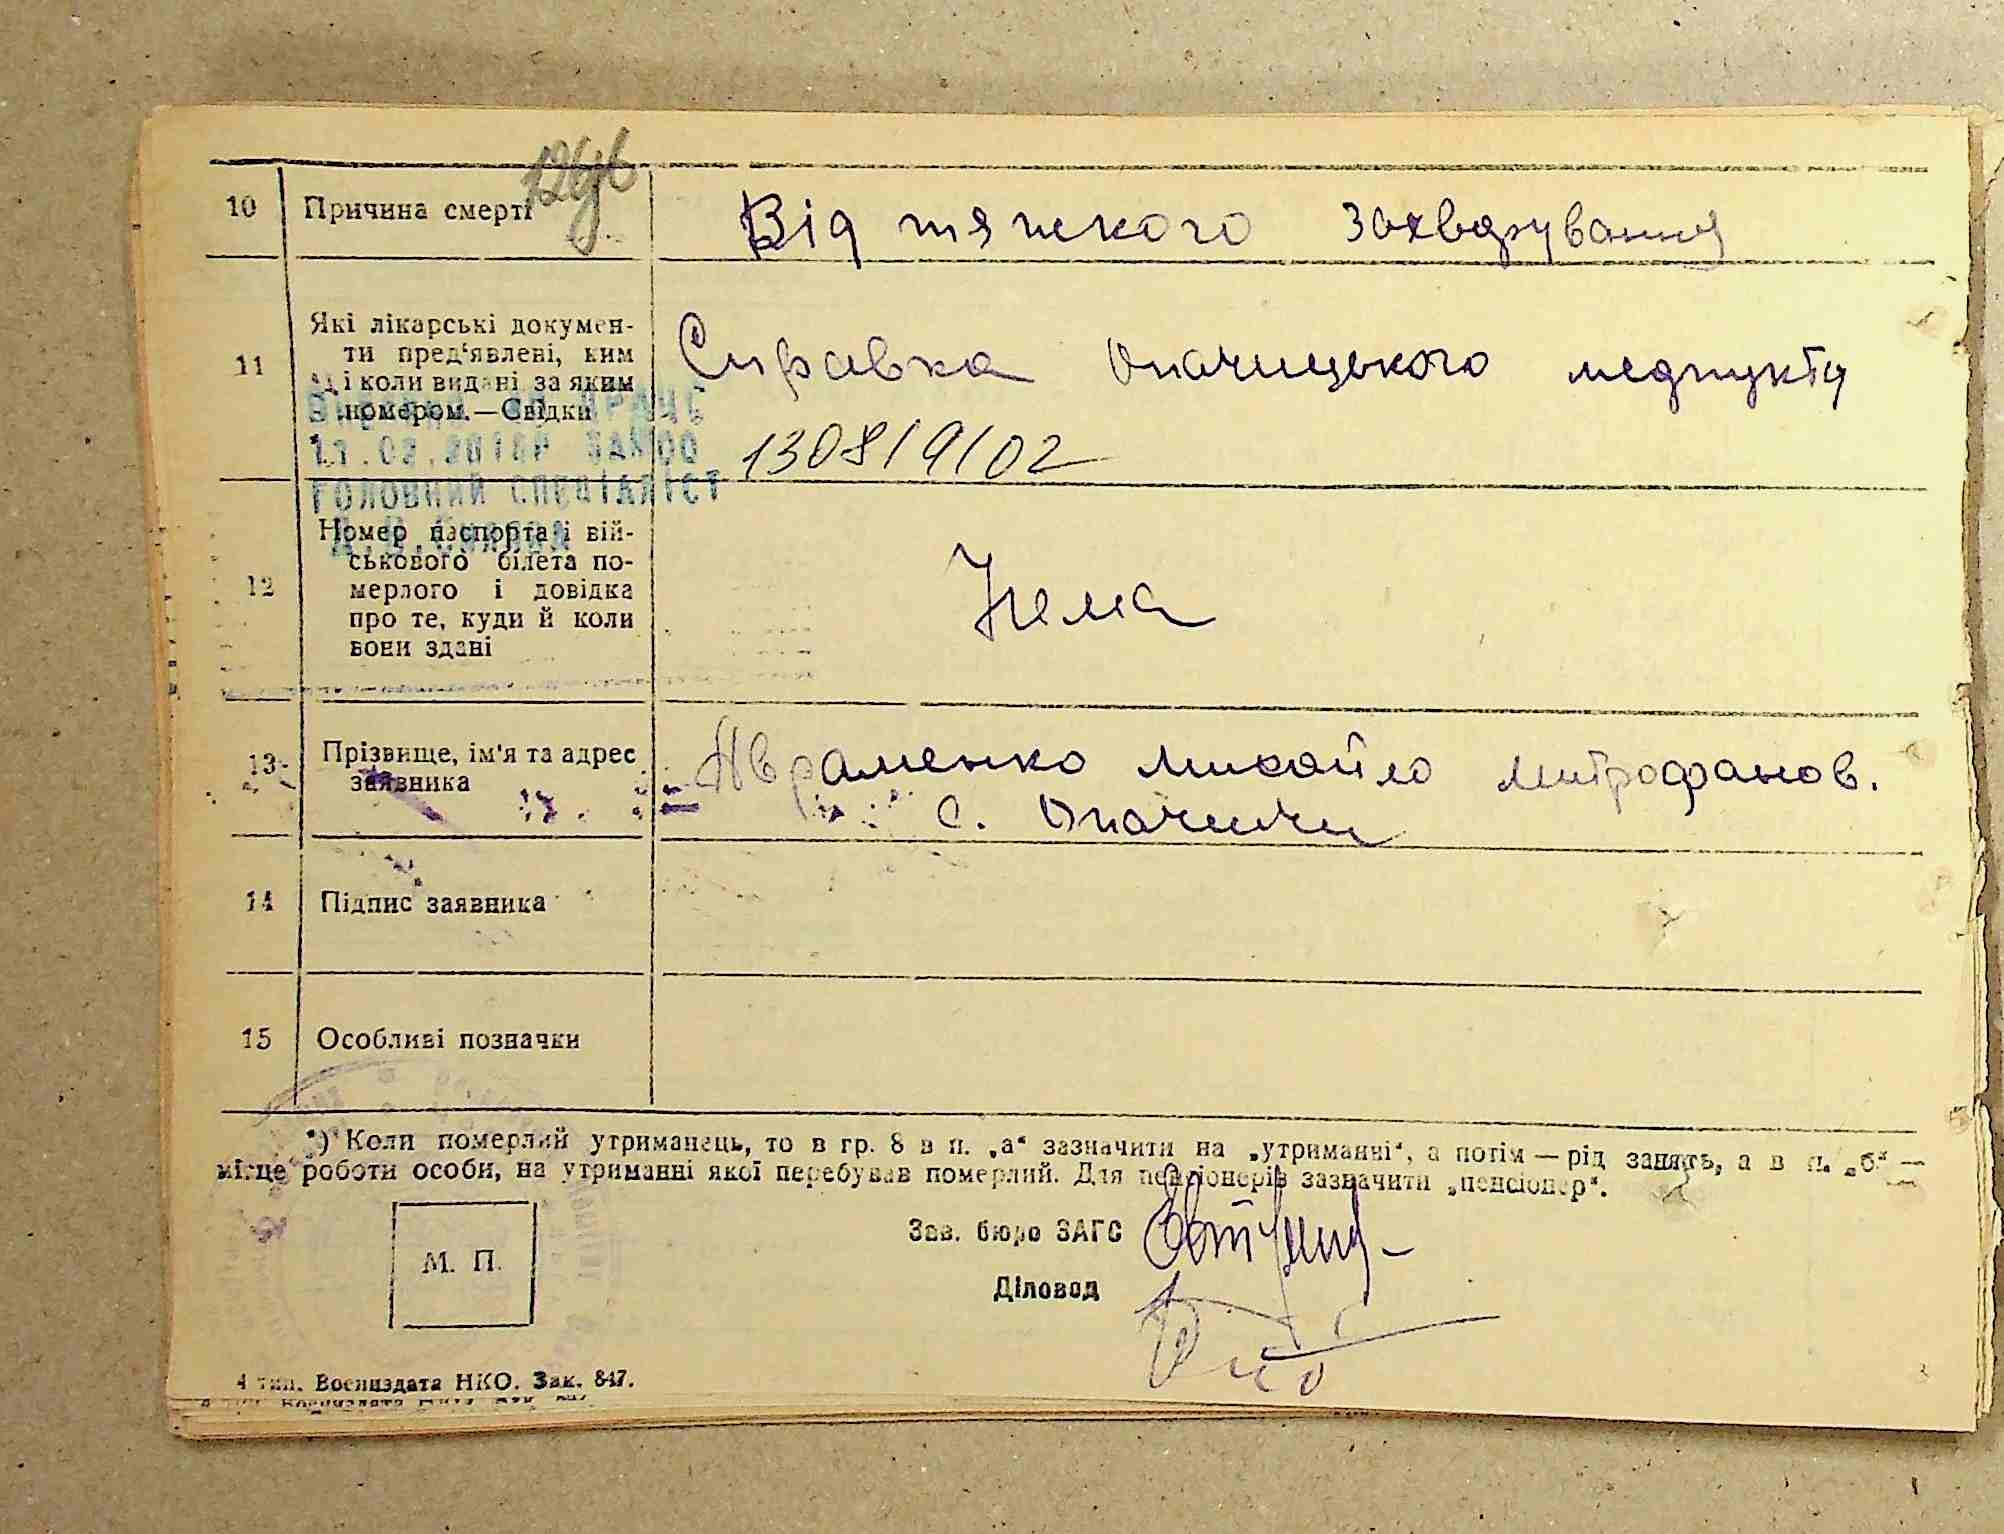 10 Причина смерті Від тяжкого захварування
11 Які лікарські докумен-
ти пред'явлені, ким
і коли видані за яким
номером.—Свідки
Справка Опачицького медпункту
1308/9/02
11.02.2016Р
ГОЛОВНИЙ СПЕЦІАЛІСТ
12 Номер паспорта і вій-
ськового білета по-
мерлого і довідка
про те, куди й коли
вони здані
Нема
13 Прізвище, ім'я та адрес
заявника
Авраменко Михайло Митрофанов.
с. Опачичи
14 Підпис заявника
15 Особливі позначки
*) Коли померлий утриманець, то в гр. 8 в п. „а“ зазначити на „утриманні“, а потім — рід занять, а в п. „б“ —
місце роботи особи, на утриманні якої перебував померлий. Для пенсіонерів зазначити „пенсіонер“.
Зав. бюро ЗАГС
Діловод
М. П.
4 тип. Воениздата НКО. Зак. 847.